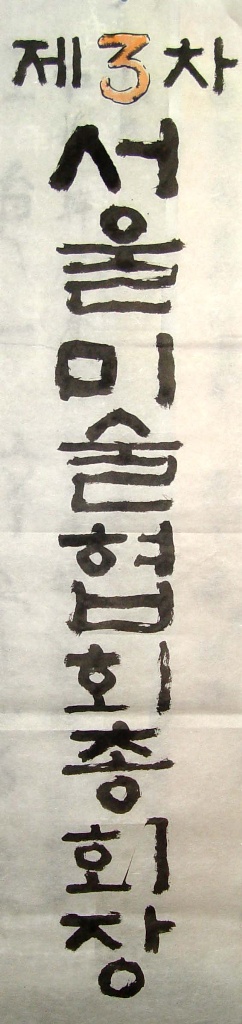 제3차
서울미술협회총회장